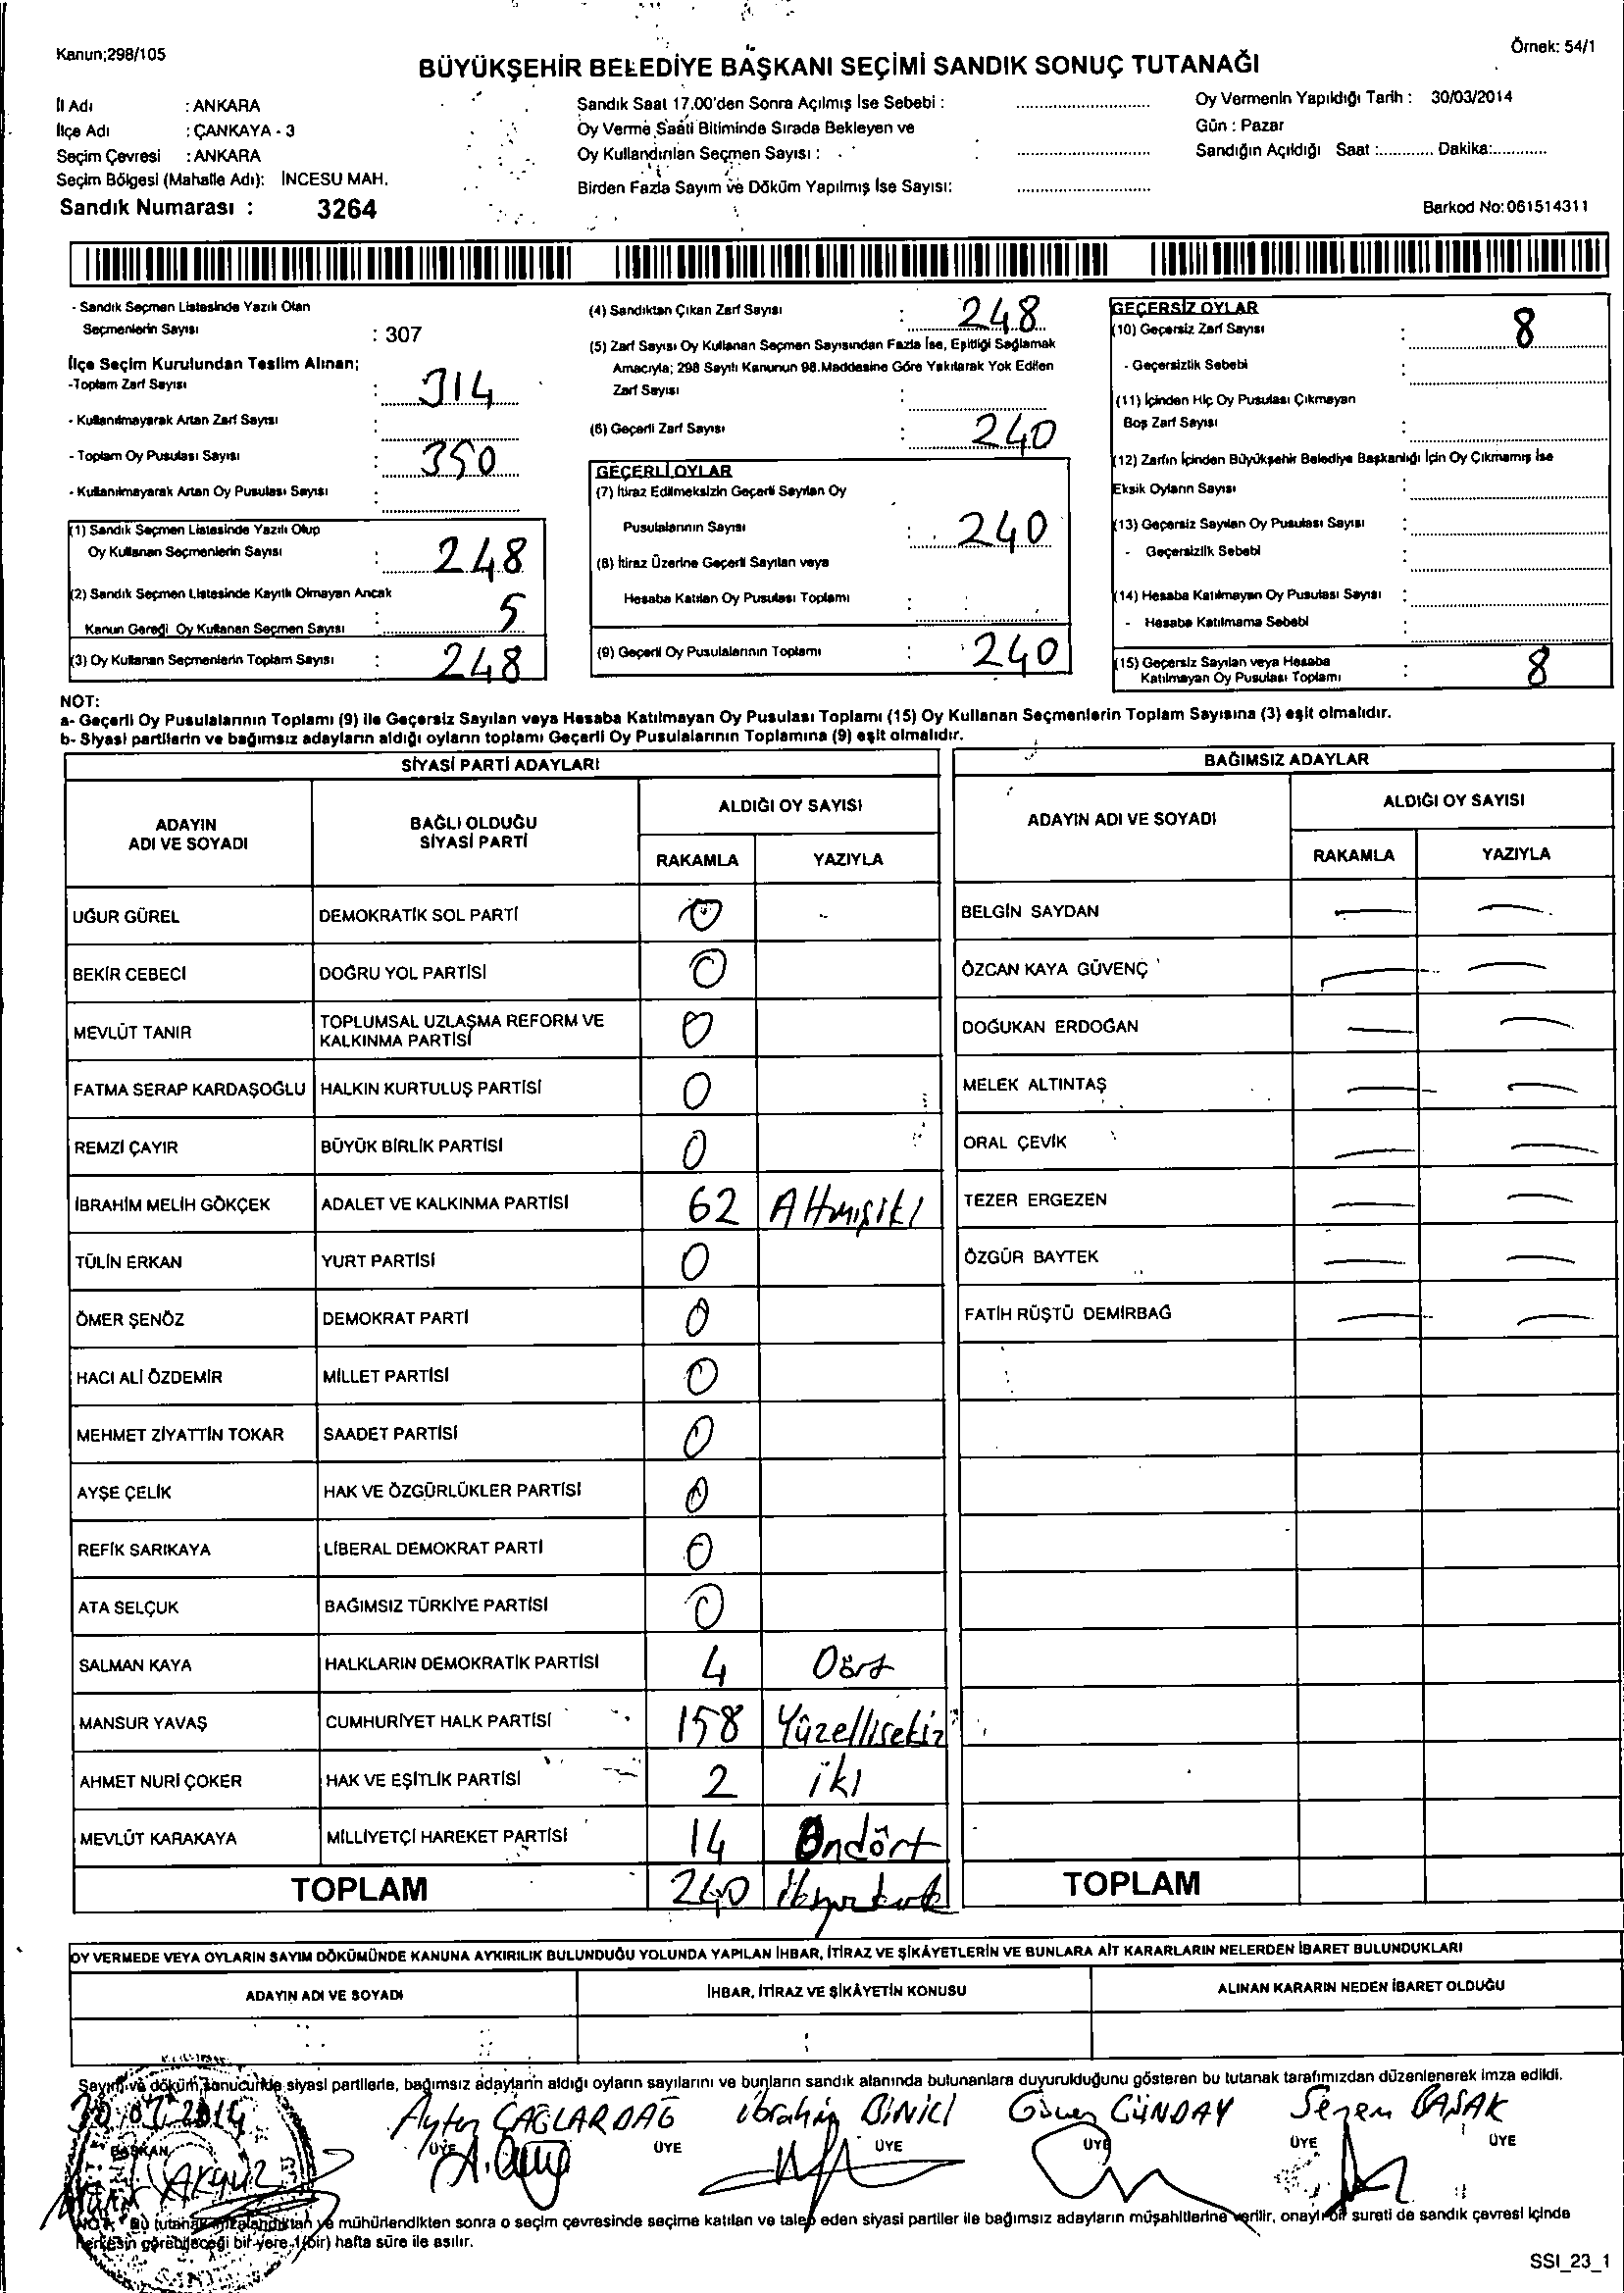 Kanun;298/105
Örnek: 54/1
BÜYÜKŞEHİR BELEDİYE BAŞKANI SEÇİMİ SANDIK SONUÇ TUTANAĞI
İl Adı : ANKARA
İlçe Adı : ÇANKAYA - 3
Seçim Çevresi : ANKARA
Seçim Bölgesi (Mahalle Adı): İNCESU MAH.
Sandık Numarası : 3264
Sandık Saat 17.00'den Sonra Açılmış İse Sebebi : ..............................
Oy Verme Saati Bitiminde Sırada Bekleyen ve
Oy Kullandırılan Seçmen Sayısı : ..............................
Birden Fazla Sayım ve Döküm Yapılmış İse Sayısı: ..............................
Oy Vermenin Yapıldığı Tarih : 30/03/2014
Gün : Pazar
Sandığın Açıldığı Saat :............ Dakika:............
Barkod No:061514311
- Sandık Seçmen Listesinde Yazılı Olan
Seçmenlerin Sayısı : 307
İlçe Seçim Kurulundan Teslim Alınan;
-Toplam Zarf Sayısı : 314
- Kullanılmayarak Artan Zarf Sayısı :
- Toplam Oy Pusulası Sayısı : 350
- Kullanılmayarak Artan Oy Pusulası Sayısı :
(1) Sandık Seçmen Listesinde Yazılı Olup
Oy Kullanan Seçmenlerin Sayısı : 248
(2) Sandık Seçmen Listesinde Kayıtlı Olmayan Ancak
Kanun Gereği Oy Kullanan Seçmen Sayısı : 5
(3) Oy Kullanan Seçmenlerin Toplam Sayısı : 248
(4) Sandıktan Çıkan Zarf Sayısı : 248
(5) Zarf Sayısı Oy Kullanan Seçmen Sayısından Fazla İse, Eşitliği Sağlamak
Amacıyla; 298 Sayılı Kanunun 98.Maddesine Göre Yakılarak Yok Edilen
Zarf Sayısı :
(6) Geçerli Zarf Sayısı : 240
GEÇERLİ OYLAR
(7) İtiraz Edilmeksizin Geçerli Sayılan Oy
Pusulalarının Sayısı : 240
(8) İtiraz Üzerine Geçerli Sayılan veya
Hesaba Katılan Oy Pusulası Toplamı :
(9) Geçerli Oy Pusulalarının Toplamı : 240
GEÇERSİZ OYLAR
(10) Geçersiz Zarf Sayısı : 8
- Geçersizlik Sebebi :
(11) İçinden Hiç Oy Pusulası Çıkmayan
Boş Zarf Sayısı :
(12) Zarfın İçinden Büyükşehir Belediye Başkanlığı İçin Oy Çıkmamış İse
Eksik Oyların Sayısı :
(13) Geçersiz Sayılan Oy Pusulası Sayısı :
- Geçersizlik Sebebi :
(14) Hesaba Katılmayan Oy Pusulası Sayısı :
- Hesaba Katılmama Sebebi :
(15) Geçersiz Sayılan veya Hesaba
Katılmayan Oy Pusulası Toplamı : 8
NOT:
a- Geçerli Oy Pusulalarının Toplamı (9) ile Geçersiz Sayılan veya Hesaba Katılmayan Oy Pusulası Toplamı (15) Oy Kullanan Seçmenlerin Toplam Sayısına (3) eşit olmalıdır.
b- Siyasi partilerin ve bağımsız adayların aldığı oyların toplamı Geçerli Oy Pusulalarının Toplamına (9) eşit olmalıdır.
SİYASİ PARTİ ADAYLARI
ADAYIN
ADI VE SOYADI
BAĞLI OLDUĞU
SİYASİ PARTİ
ALDIĞI OY SAYISI
RAKAMLA YAZIYLA
UĞUR GÜREL DEMOKRATİK SOL PARTİ 0 -
BEKİR CEBECİ DOĞRU YOL PARTİSİ 0
MEVLÜT TANIR TOPLUMSAL UZLAŞMA REFORM VE
KALKINMA PARTİSİ 0
FATMA SERAP KARDAŞOĞLU HALKIN KURTULUŞ PARTİSİ 0
REMZİ ÇAYIR BÜYÜK BİRLİK PARTİSİ 0
İBRAHİM MELİH GÖKÇEK ADALET VE KALKINMA PARTİSİ 62 Altmışiki
TÜLİN ERKAN YURT PARTİSİ 0
ÖMER ŞENÖZ DEMOKRAT PARTİ 0
HACI ALİ ÖZDEMİR MİLLET PARTİSİ 0
MEHMET ZİYATTİN TOKAR SAADET PARTİSİ 0
AYŞE ÇELİK HAK VE ÖZGÜRLÜKLER PARTİSİ 0
REFİK SARIKAYA LİBERAL DEMOKRAT PARTİ 0
ATA SELÇUK BAĞIMSIZ TÜRKİYE PARTİSİ 0
SALMAN KAYA HALKLARIN DEMOKRATİK PARTİSİ 4 Dört
MANSUR YAVAŞ CUMHURİYET HALK PARTİSİ 158 Yüzellisekiz
AHMET NURİ ÇOKER HAK VE EŞİTLİK PARTİSİ 2 iki
MEVLÜT KARAKAYA MİLLİYETÇİ HAREKET PARTİSİ 14 Ondört
TOPLAM 240 ikiyüzkırk
BAĞIMSIZ ADAYLAR
ADAYIN ADI VE SOYADI
ALDIĞI OY SAYISI
RAKAMLA YAZIYLA
BELGİN SAYDAN — —
ÖZCAN KAYA GÜVENÇ — —
DOĞUKAN ERDOĞAN — —
MELEK ALTINTAŞ — —
ORAL ÇEVİK — —
TEZER ERGEZEN — —
ÖZGÜR BAYTEK — —
FATİH RÜŞTÜ DEMİRBAĞ — —
TOPLAM
OY VERMEDE VEYA OYLARIN SAYIM DÖKÜMÜNDE KANUNA AYKIRILIK BULUNDUĞU YOLUNDA YAPILAN İHBAR, İTİRAZ VE ŞİKÂYETLERİN VE BUNLARA AİT KARARLARIN NELERDEN İBARET BULUNDUKLARI
ADAYIN ADI VE SOYADI
İHBAR, İTİRAZ VE ŞİKÂYETİN KONUSU
ALINAN KARARIN NEDEN İBARET OLDUĞU
Sayım ve döküm sonucunda siyasi partilerle, bağımsız adayların aldığı oyların sayılarını ve bunların sandık alanında bulunanlara duyurulduğunu gösteren bu tutanak tarafımızdan düzenlenerek imza edildi.
30/03/2014 Ayten ÇAĞLARDAĞ ibrahim BİNİCİ Güneş GÜNDAY Seren BAŞAK
BAŞKAN ÜYE ÜYE ÜYE ÜYE ÜYE ÜYE
AKYÜZ
NOT: Bu tutanak imzalandıktan ve mühürlendikten sonra o seçim çevresinde seçime katılan ve talep eden siyasi partiler ile bağımsız adayların müşahitlerine verilir, onaylı bir sureti de sandık çevresi içinde
herkesin görebileceği bir yere 1 (bir) hafta süre ile asılır.
SSI_23_1